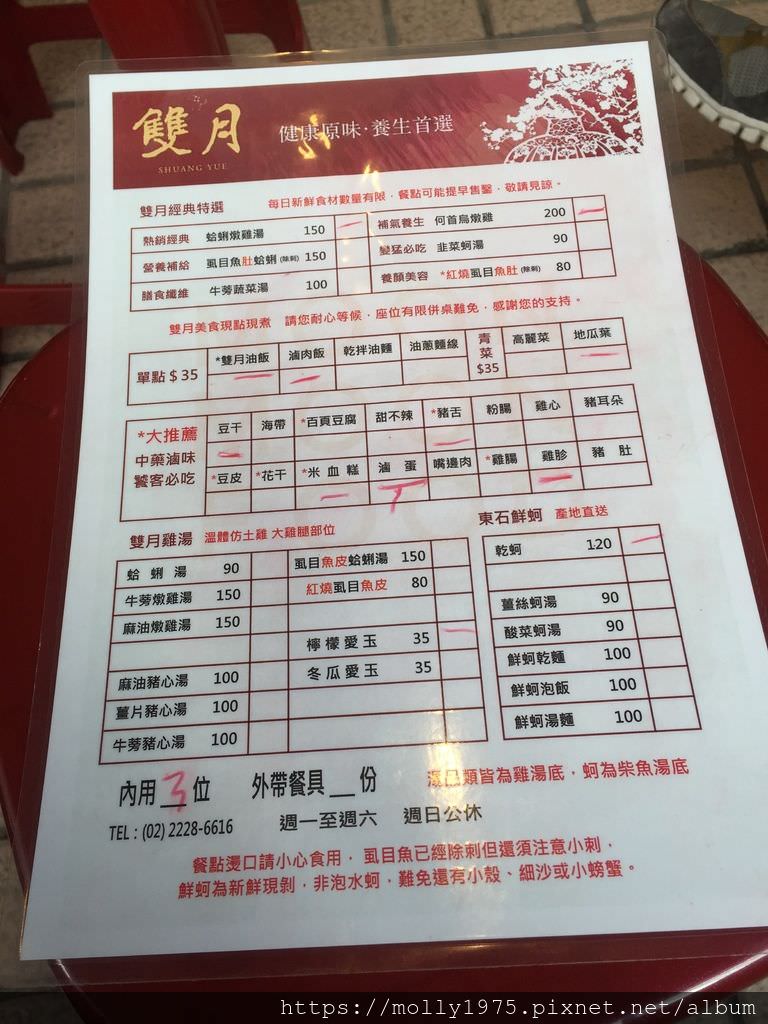 雙月
SHUANG YUE
健康原味·養生首選
雙月經典特選 每日新鮮食材數量有限，餐點可能提早售罄，敬請見諒。
熱銷經典 蛤蜊燉雞湯 150 補氣養生 何首烏燉雞 200
營養補給 虱目魚肚蛤蜊(除刺) 150 變猛必吃 韭菜蚵湯 90
膳食纖維 牛蒡蔬菜湯 100 養顏美容 *紅燒虱目魚肚(除刺) 80
雙月美食現點現煮 請您耐心等候，座位有限併桌難免，感謝您的支持。
單點 $35 *雙月油飯 滷肉飯 乾拌油麵 油蔥麵線 青菜$35 高麗菜 地瓜葉
*大推薦 中藥滷味 饕客必吃
豆干 海帶 *百頁豆腐 甜不辣 *豬舌 粉腸 雞心 豬耳朵
*豆皮 *花干 *米血糕 滷蛋 嘴邊肉 *雞腸 雞胗 豬肚
雙月雞湯 溫體仿土雞 大雞腿部位
蛤蜊湯 90
牛蒡燉雞湯 150
麻油燉雞湯 150
麻油豬心湯 100
薑片豬心湯 100
牛蒡豬心湯 100
虱目魚皮蛤蜊湯 150
紅燒虱目魚皮 80
檸檬愛玉 35
冬瓜愛玉 35
東石鮮蚵 產地直送
乾蚵 120
薑絲蚵湯 90
酸菜蚵湯 90
鮮蚵乾麵 100
鮮蚵泡飯 100
鮮蚵湯麵 100
內用 3 位 外帶餐具 __ 份 湯品類皆為雞湯底，蚵為柴魚湯底
TEL：(02) 2228-6616 週一至週六 週日公休
餐點燙口請小心食用，虱目魚已經除刺但還須注意小刺，
鮮蚵為新鮮現剝，非泡水蚵，難免還有小殼、細沙或小螃蟹。
https://molly1975.pixnet.net/album